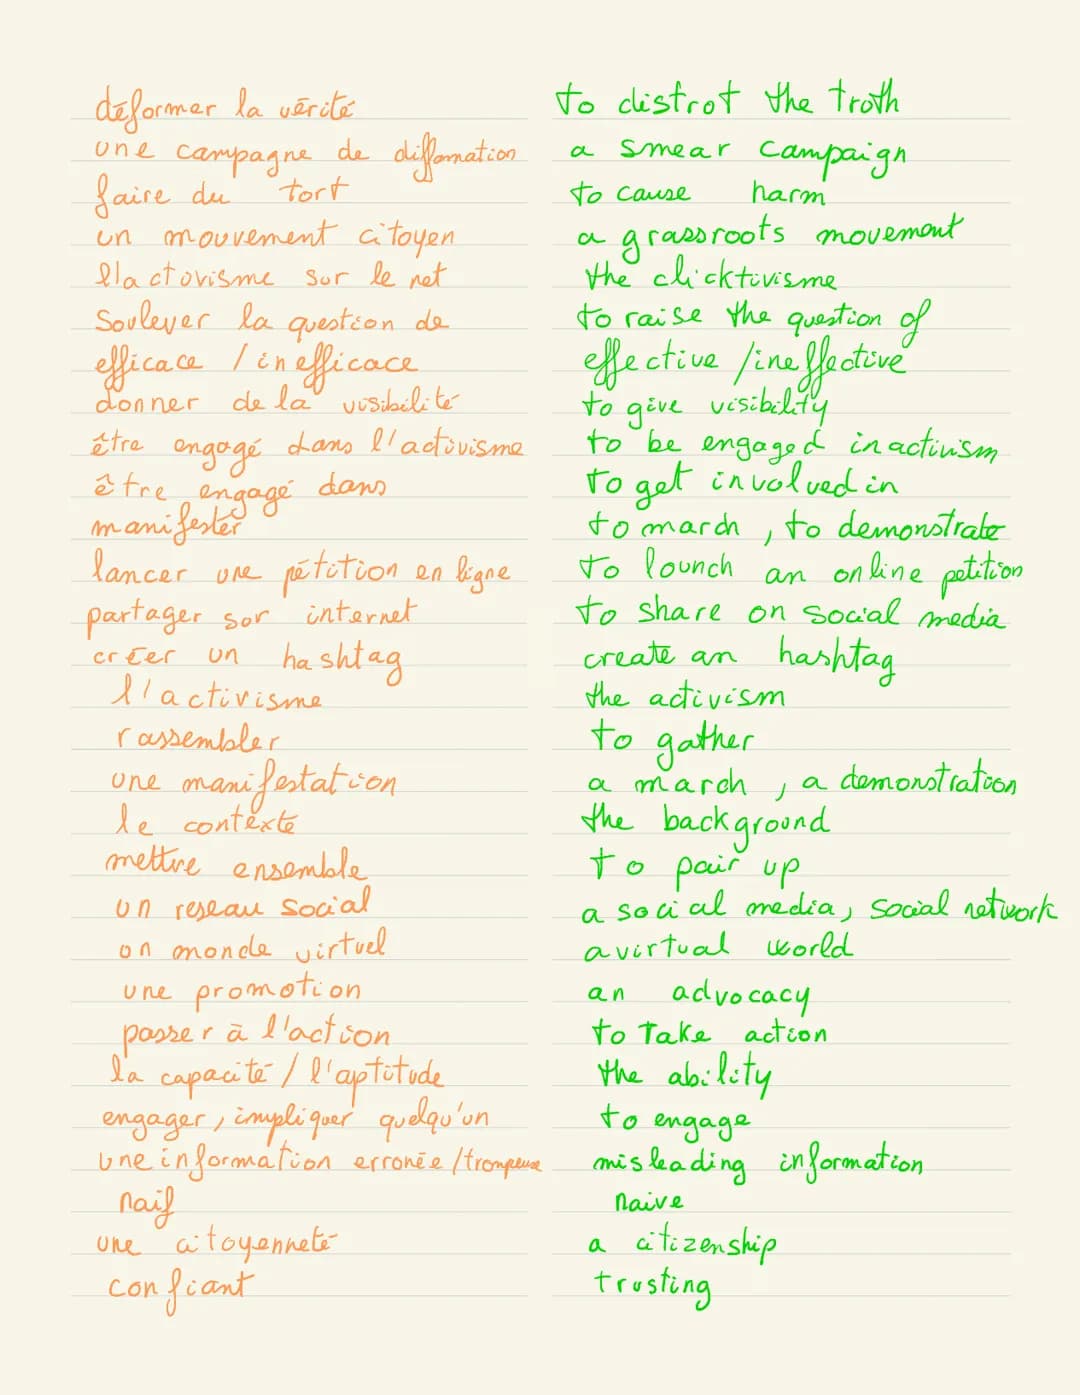 déformer la vérité to distrot the troth
une campagne de diffamation a smear campaign
faire du tort to cause harm
un mouvement citoyen a grassroots movement
l'activisme sur le net the clicktivisme
Soulever la question de to raise the question of
efficace / inefficace effective / ineffective
donner de la visibilité to give visibility
être engagé dans l'activisme to be engaged in activism
être engagé dans to get involved in
manifester to march, to demonstrate
lancer une pétition en ligne to lounch an online petition
partager sur internet to share on social media
créer un hashtag create an hashtag
l'activisme the activism
rassembler to gather
une manifestation a march, a demonstration
le contexte the background
mettre ensemble to pair up
un reseau social a social media, social network
un monde virtuel a virtual world
une promotion an advocacy
passer à l'action to take action
la capacité / l'aptitude the ability
engager, impliquer quelqu'un to engage
une information erronée / trompeuse misleading information
naif naive
une citoyenneté a citizenship
confiant trusting